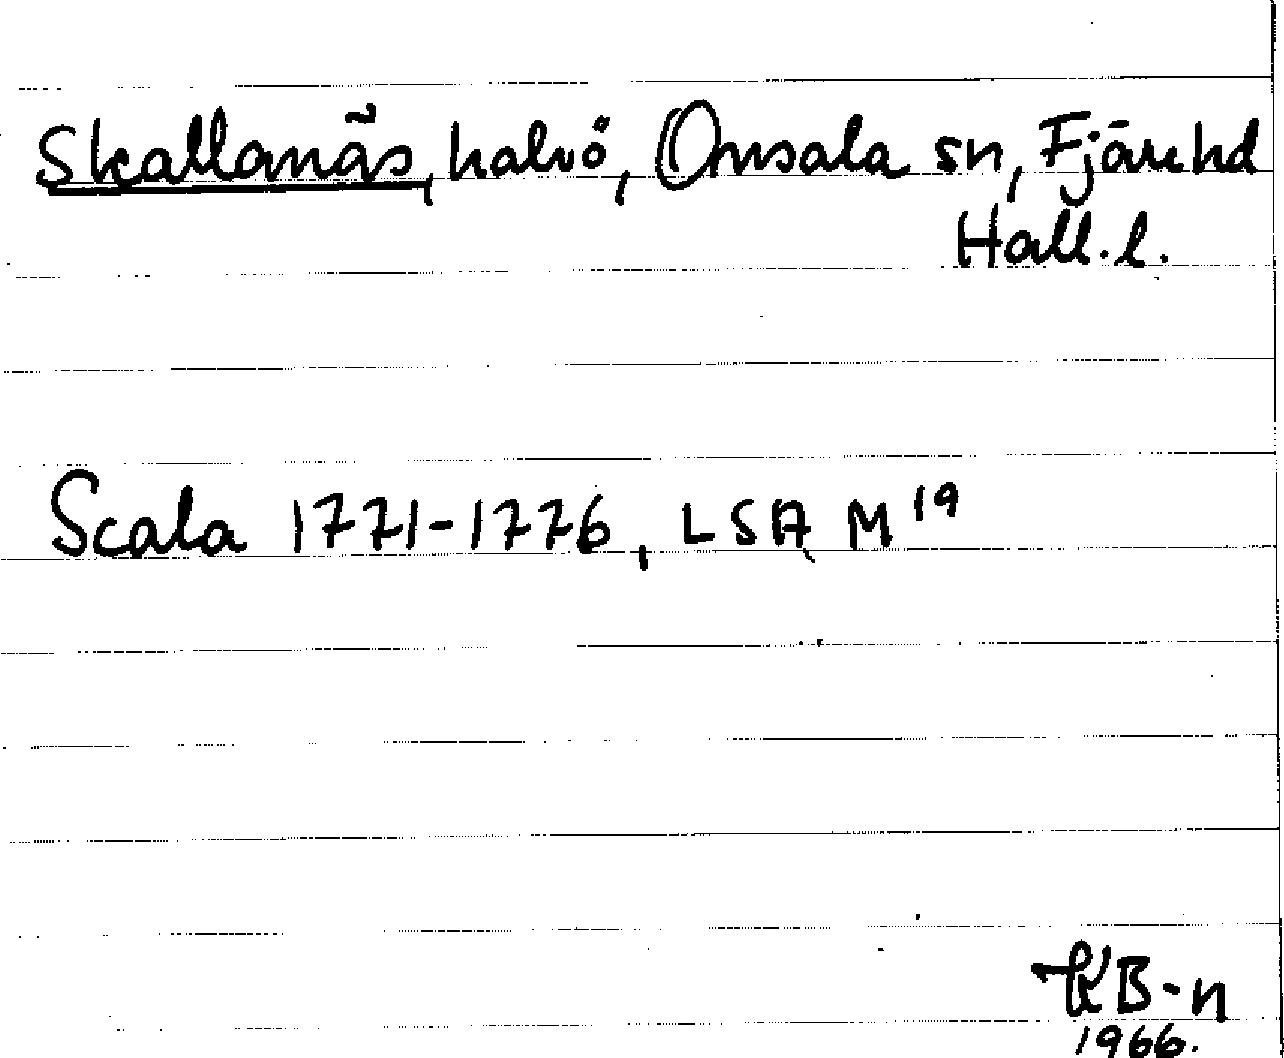 Skallanäs, halvö, Onsala sn, Fjäre hd
Hall. l.
Scala 1771-1776, LSA M 19
KB-n
1966.